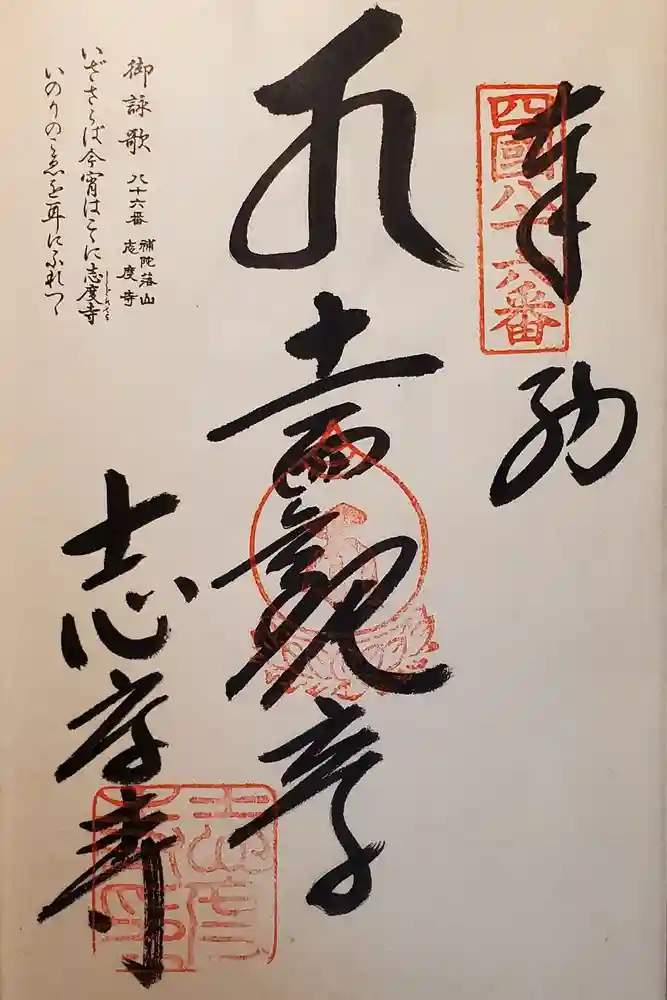 奉納
四國八十六番
十一面観音
志度寺
御詠歌 八十六番 補陀落山 志度寺
いざさらば今宵はここに志度寺
いのりの声を耳にふれつゝ